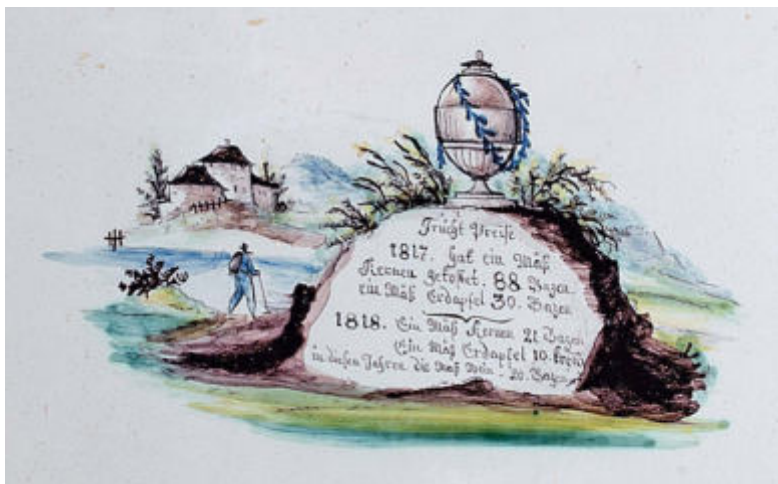 Frücht Preise
1817. hat ein Mäß
Kernen gekostet. 88 Bazen
ein Mäß Erdäpfel 30. Bazen
1818. Ein Mäß Kernen 21 Bazen
Ein Mäß Erdäpfel 10.
in diesen Jahren die Maß Wein 20. Bazen